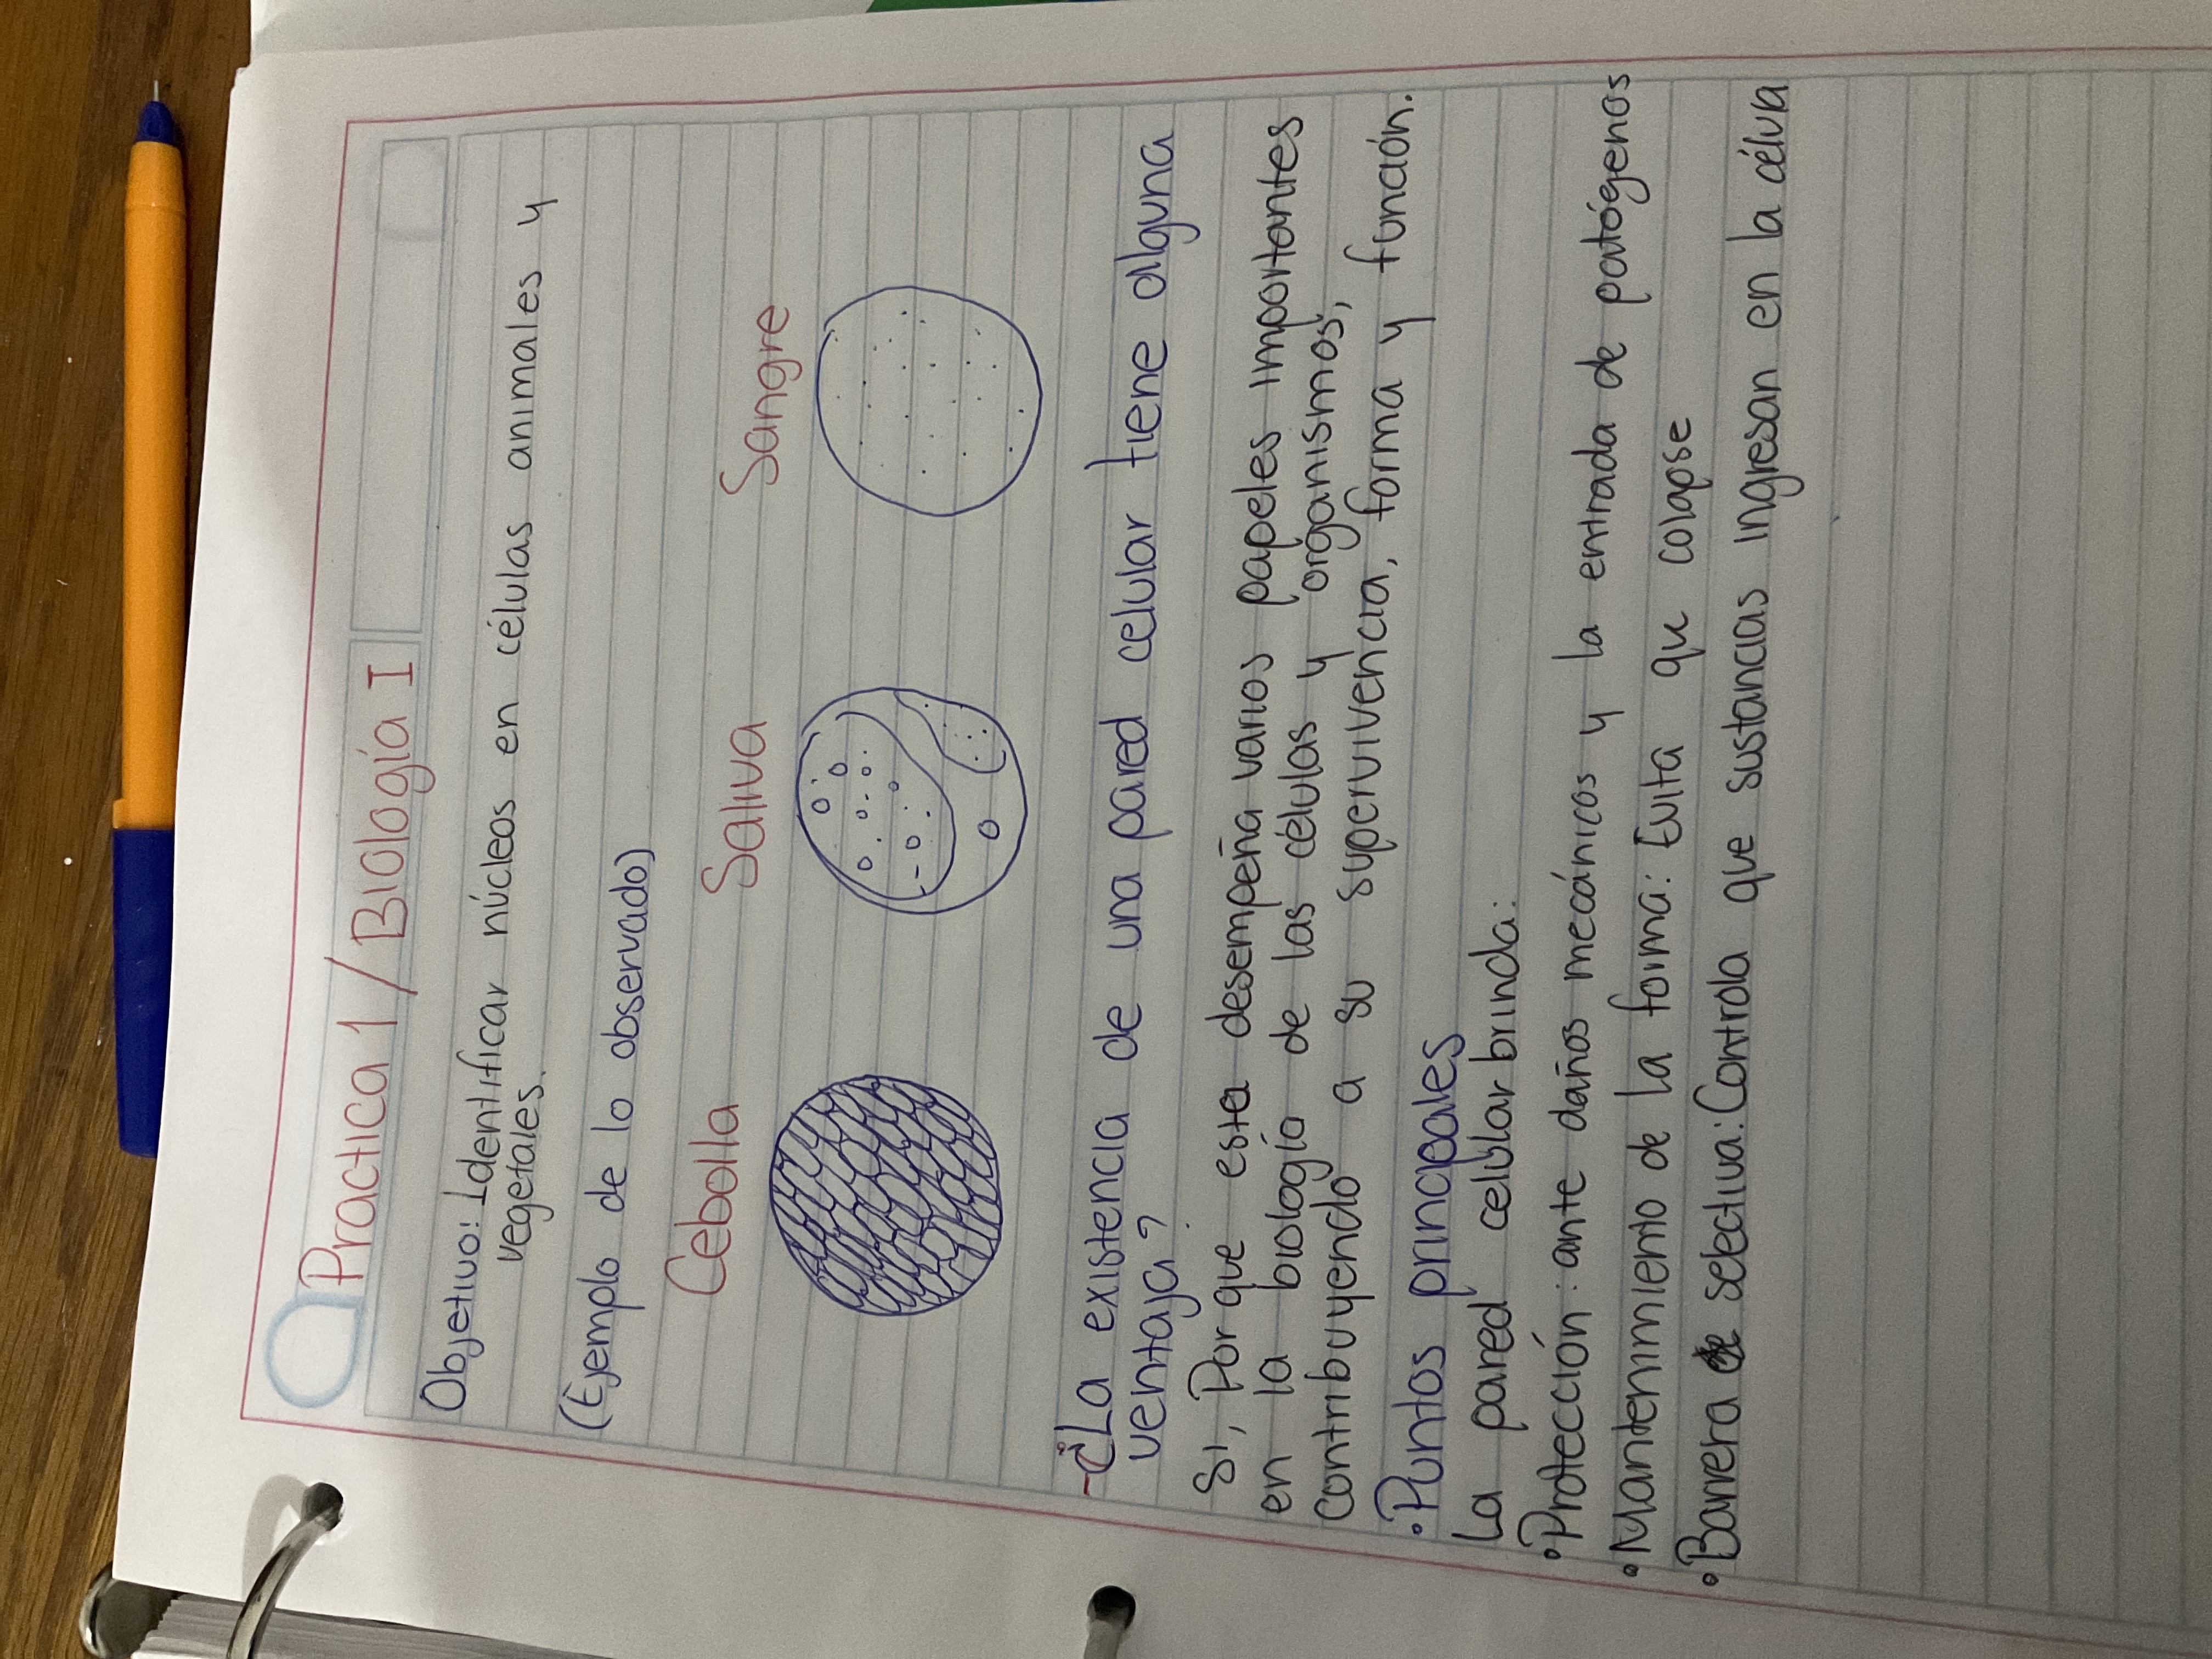 Practica 1 / Biología I
Objetivo: Identificar núcleos en células animales y
vegetales.
(Ejemplo de lo observado)
Cebolla Saliva Sangre
-¿La existencia de una pared celular tiene alguna
ventaja?
Si, Porque esta desempeña varios papeles importantes
en la biología de las células y organismos,
contribuyendo a su supervivencia, forma y función.
• Puntos principales
La pared celular brinda:
• Protección: ante daños mecánicos y la entrada de patógenos
• Mantenimiento de la forma: Evita que colapse
• Barrera selectiva: Controla que sustancias ingresan en la célula